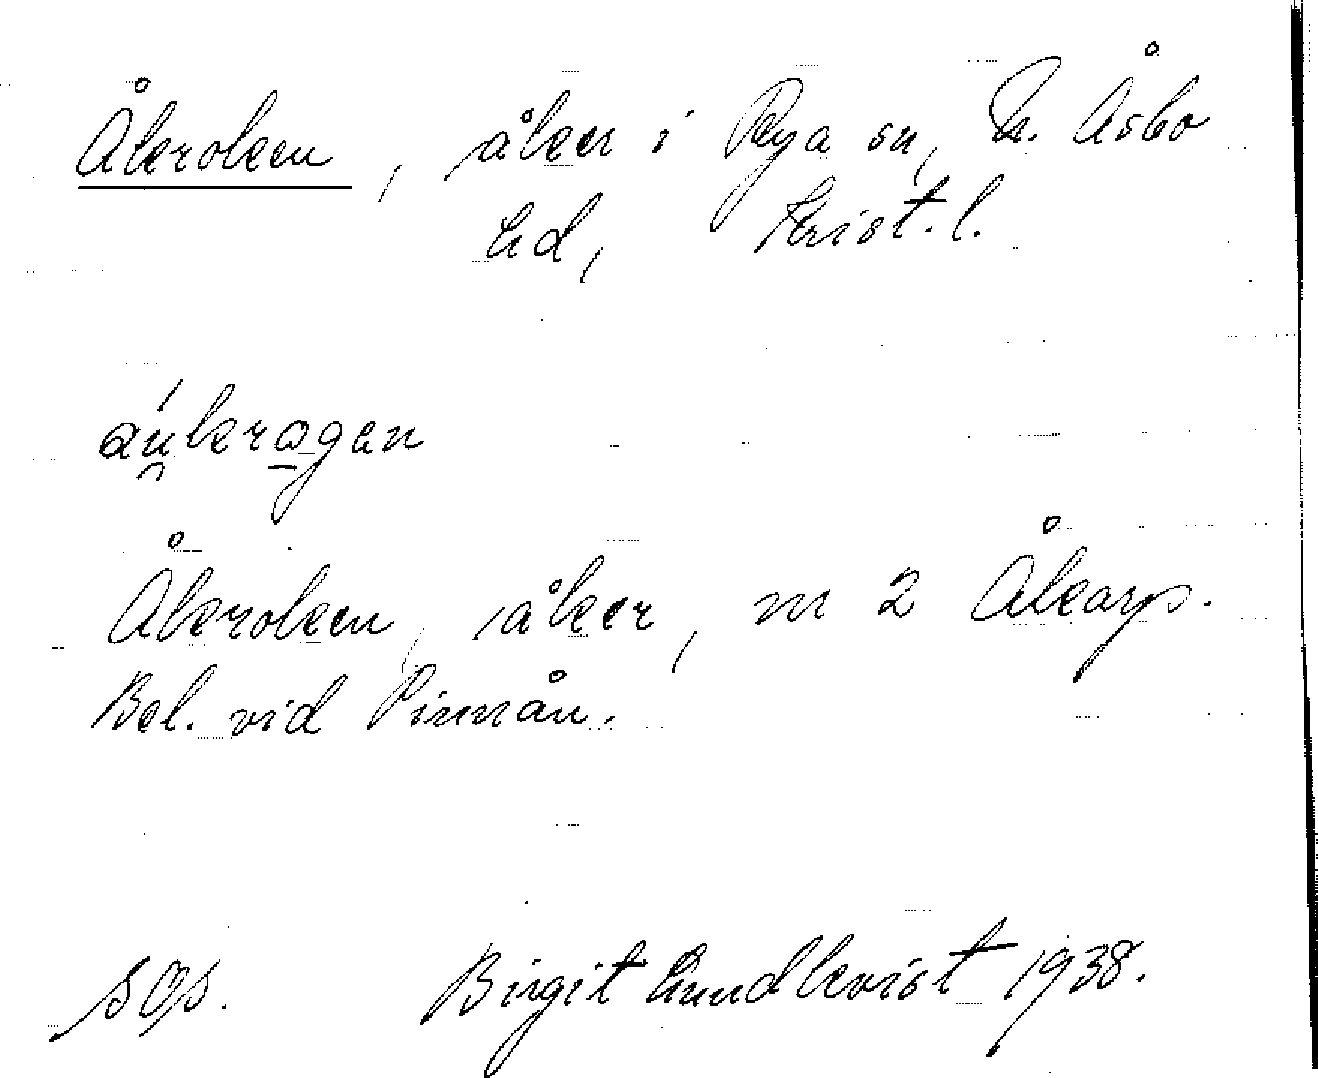 Åkroken, åker i Rya sn, N. Åsbo
hd, Krist. l.
áu̯kro̱gan
Åkroken, åker, nr 2 Åkarp.
Bel. vid Pinnån.
Birgit Lundkvist 1938.